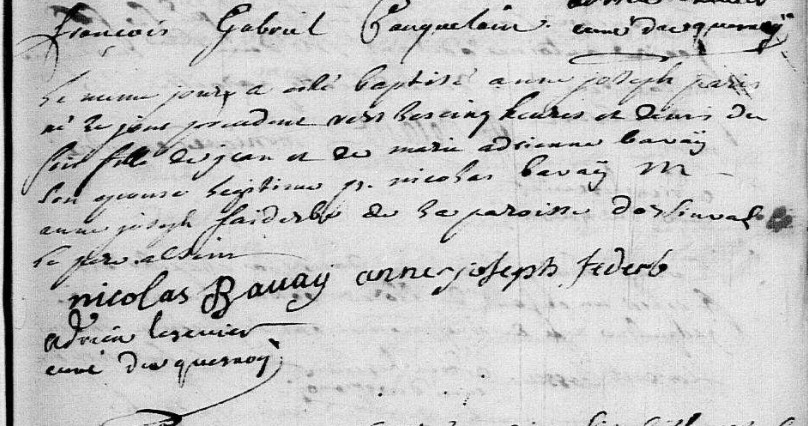 François Gabriel Pauquelain
curé du quesnoÿ
Le meme jour a esté baptisé anne joseph paris
né le jour precedent vers les cinq heures et demis du
soir fille de jean et de marie adrienne bavaÿ
son epouse legitime p. nicolas bavaÿ m
anne joseph faiderbe de la paroisse
le pere absent
nicolas Bavaÿ anne joseph federb
adrien
curé du quesnoÿ